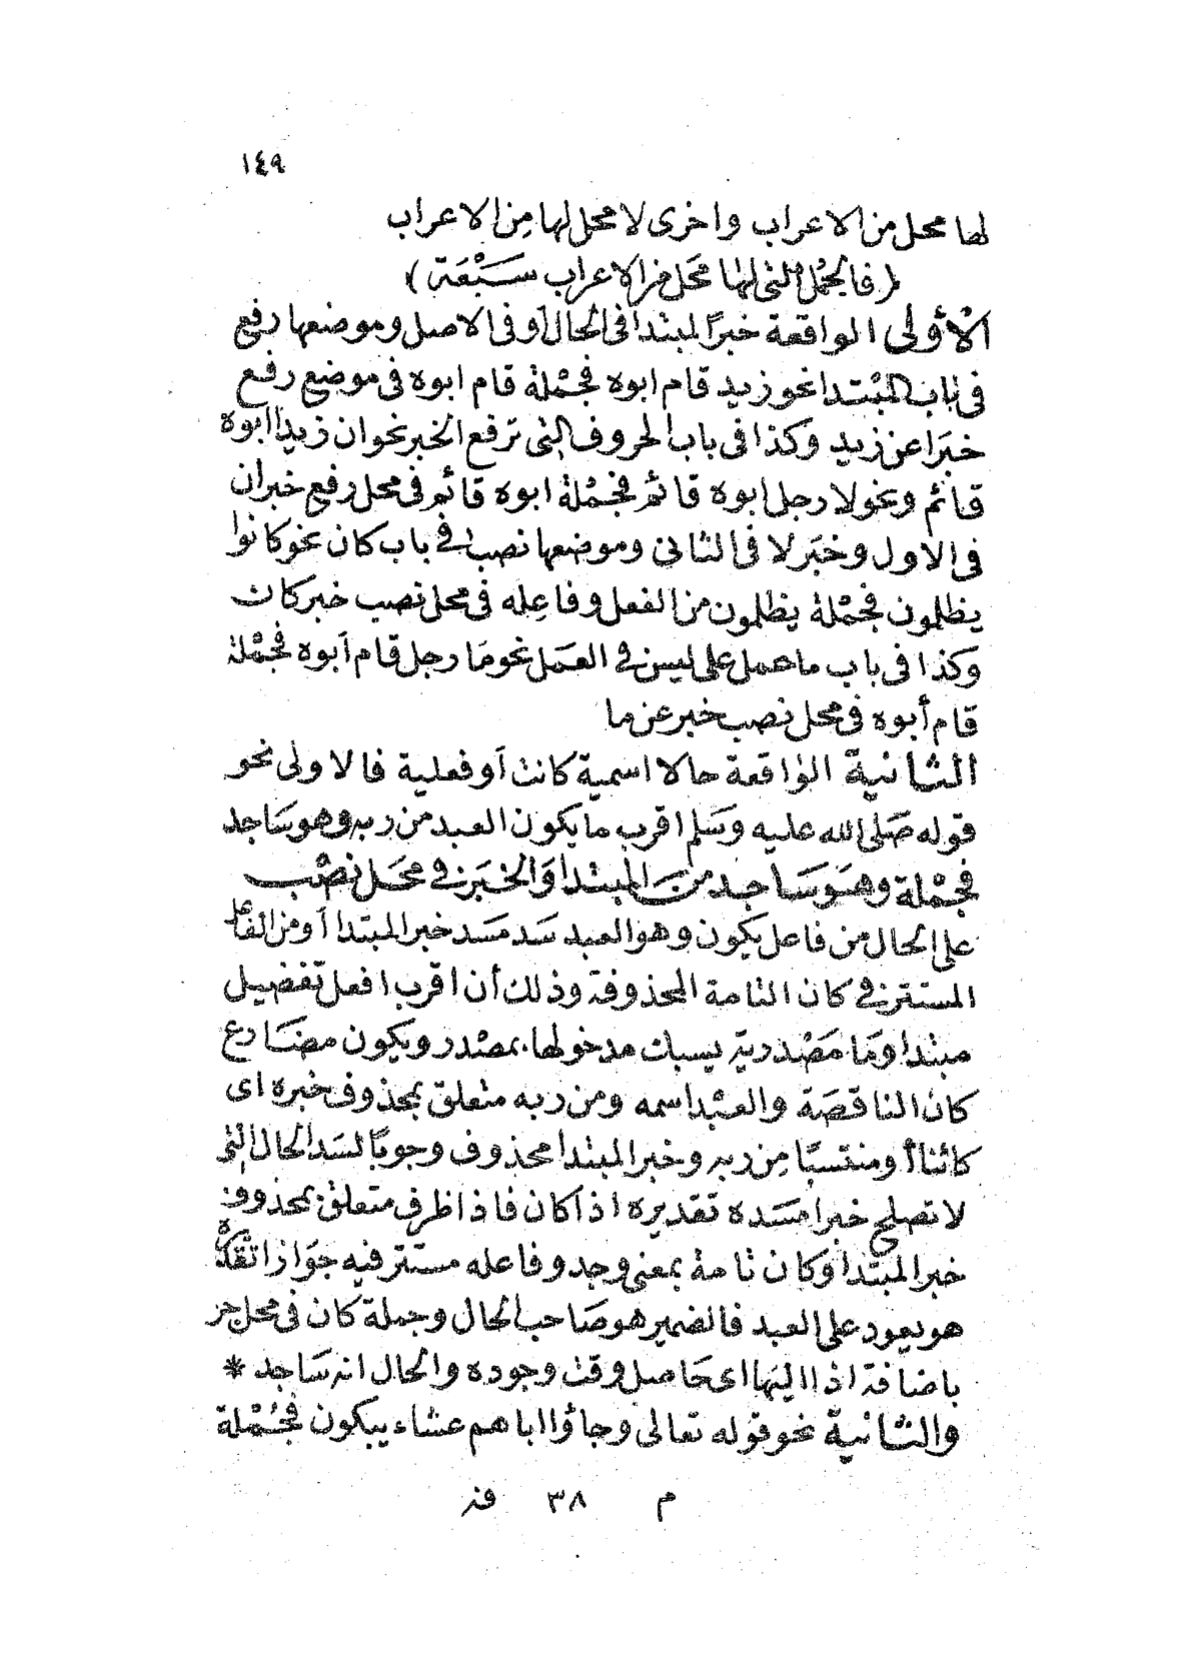 ١٤٩
لها محل من الاعراب واخرى لا محل لها مِن الاعراب
( فالجُمل التى لها مَحَل من الاعراب سَبْعَة )
الأولى الواقعة خبرًا لمبتدا فى الحال أو فى الاصل وموضعها رفع
فى باب المبْتدا نحو زيد قام ابوه فجمْلة قام ابوه فى موضع رفع
خبَرا عن زيد وكذا فى باب الحروف التى ترفع الخبر نحو ان زيدا ابوه
قائم ونحو لا رجل ابوه قائم فجمْلة ابوه قائم فى محل رفع خبر ان
فى الاول وخبَر لا فى الثانى وموضعها نصب فى باب كان نحو كانوا
يظلمون فجمْلة يظلمون من الفعل وفاعِله فى محل نصب خبر كان
وكذا فى باب ما حمل على ليس فى العمَل نحو مَا رجل قام أبوه فجمْلة
قام أبوه فى محل نصب خبر عن ما
الثانية الواقعة حالا اسمية كانت أو فعلية فالاولى نحو
قوله صَلى الله عليه وسَلم اقرب ما يكون العبد من ربه وهو سَاجد
فجمْلة وهو سَاجد من المبتدا وَالخبَر فى محَل نصْب
على الحال من فاعل يكون وهو العبد سَد مَسَد خبر المبتدا أو من الفاعل
المستتر فى كان التامة المحذوفة وذلك أن اقرب افعل تفضيل
مبتدا ومَا مَصْدرية يسبك مدخولها بمصْدر ويكون مضَارع
كان الناقصَة والعبْد اسمه ومن ربه متعلق بمحذوف خبره اى
كائنا أو منتسبًا مِن ربه وخبر المبتدا محذوف وجوبًا لسَد الحال التى
لا تصلح خبرا مسَده تقديره اذا كان فاذا ظرف متعلق بمحذوف
خبر المبتدا وكان تامة بمعنى وجد وفاعله مستتر فيه جوَازا تقديره
هو يعود على العبد فالضمير هو صَاحب الحال وجملة كان فى محل جر
باضافة اذا اليها اى حَاصل وقت وجوده والحال انه سَاجد *
والثانية نحو قوله تعالى وجاؤا اباهم عشاء يبكون فجُمْلة
م ٣٨ فت